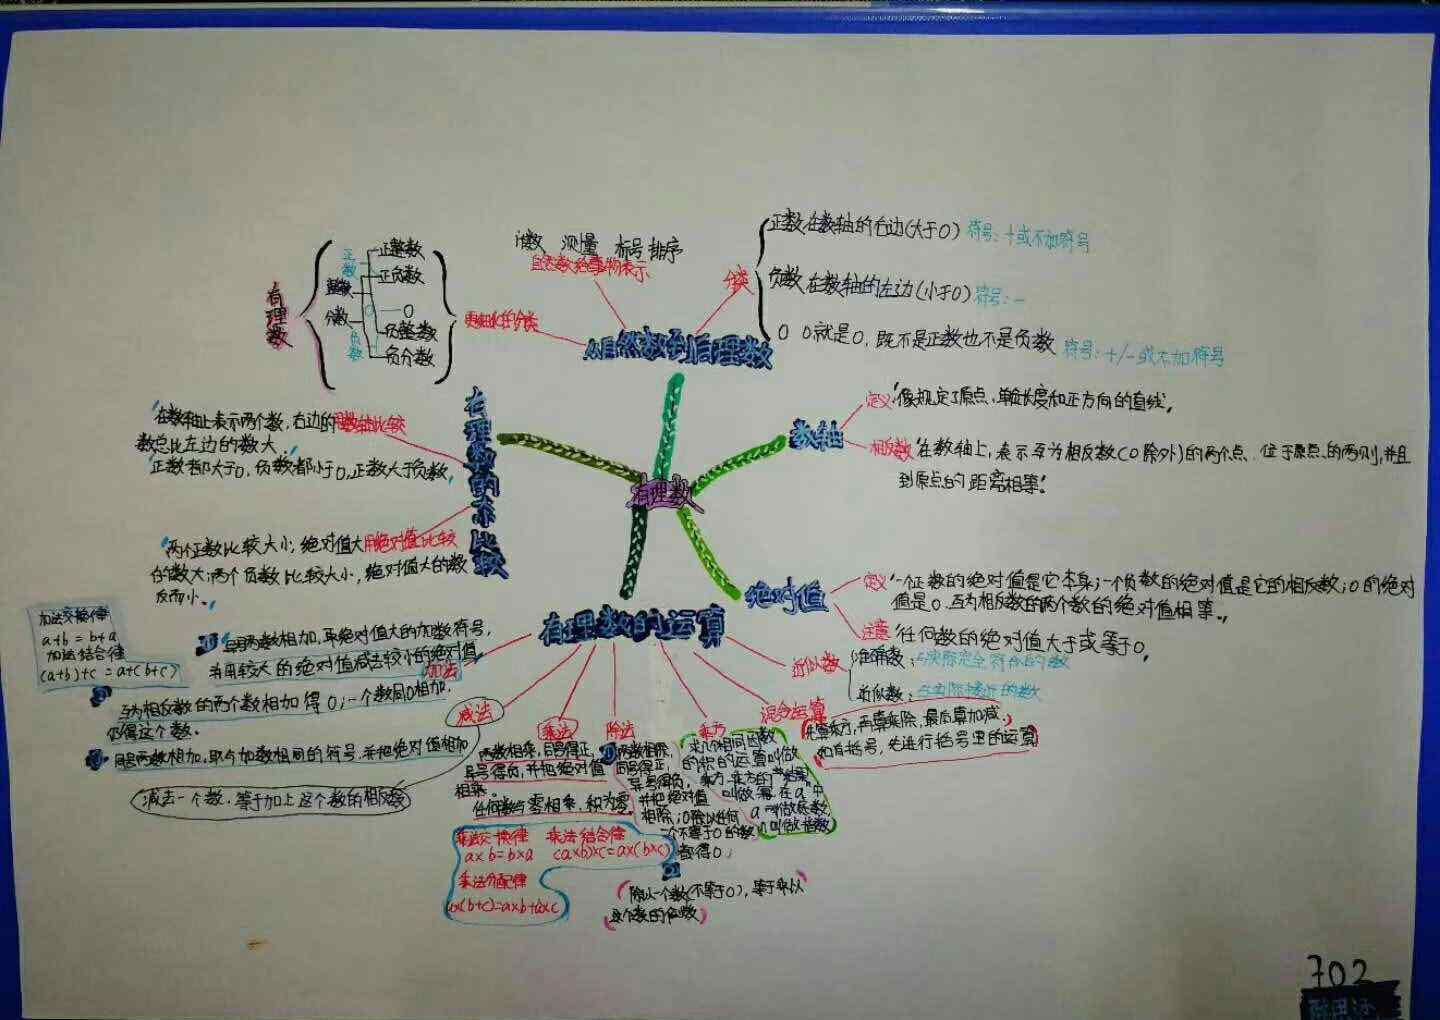 有理数
从自然数到有理数
计数 测量 标号 排序
分类
正数 在数轴的右边(大于0) 符号:+或不加符号
负数 在数轴的左边(小于0) 符号:-
0 0就是0,既不是正数也不是负数 符号:+/-或不加符号
有理数
整数
分数
正数
0
负数
正整数
正负数
0
负整数
负分数
数轴
定义 像规定了原点、单位长度和正方向的直线。
相反数 在数轴上,表示互为相反数(0除外)的两个点,位于原点的两侧,并且
到原点的距离相等。
绝对值
定义 一个正数的绝对值是它本身;一个负数的绝对值是它的相反数;0的绝对
值是0.互为相反数的两个数的绝对值相等。
注意 任何数的绝对值大于或等于0。
有理数的大小比较
用数轴比较
在数轴上表示两个数,右边的
数总比左边的数大。
正数都大于0,负数都小于0,正数大于负数
用绝对值比较
两个正数比较大小,绝对值大
的数大;两个负数比较大小,绝对值大的数
反而小。
有理数的运算
加法
异号两数相加,取绝对值大的加数符号,
并用较大的绝对值减去较小的绝对值
互为相反数的两个数相加得0;一个数同0相加,
仍得这个数。
同号两数相加,取与加数相同的符号,并把绝对值相加
加法交换律
a+b=b+a
加法结合律
(a+b)+c=a+(b+c)
减法
减去一个数,等于加上这个数的相反数
乘法
两数相乘,同号得正,
异号得负,并把绝对值
相乘。
任何数与零相乘,积为零
乘法交换律 乘法结合律
a×b=b×a (a×b)×c=a×(b×c)
乘法分配律
a×(b+c)=a×b+a×c
除法
两数相除,
同号得正,
异号得负,
并把绝对值
相除;0除以任何
一个不等于0的数
都得0;
除以一个数(不等于0),等于乘以
这个数的倒数
乘方
求几个相同因数
的积的运算叫做
乘方.乘方的"结果"
叫做幂.在aⁿ中
a叫做底数
n叫做指数
混合运算
先算乘方,再算乘除,最后算加减.
如有括号,先进行括号里的运算
近似数
准确数:与实际完全符合的数
近似数:与实际接近的数
702